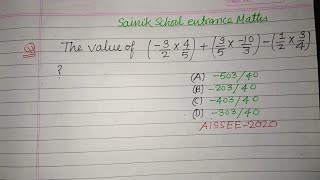 Sainik School entrance Maths
Q) The value of (-3/2 × 4/5) + (9/5 × -10/3) - (1/2 × 3/4)
?
(A) -503/40
(B) -203/40
(C) -403/40
(D) -303/40
AISSEE-2020